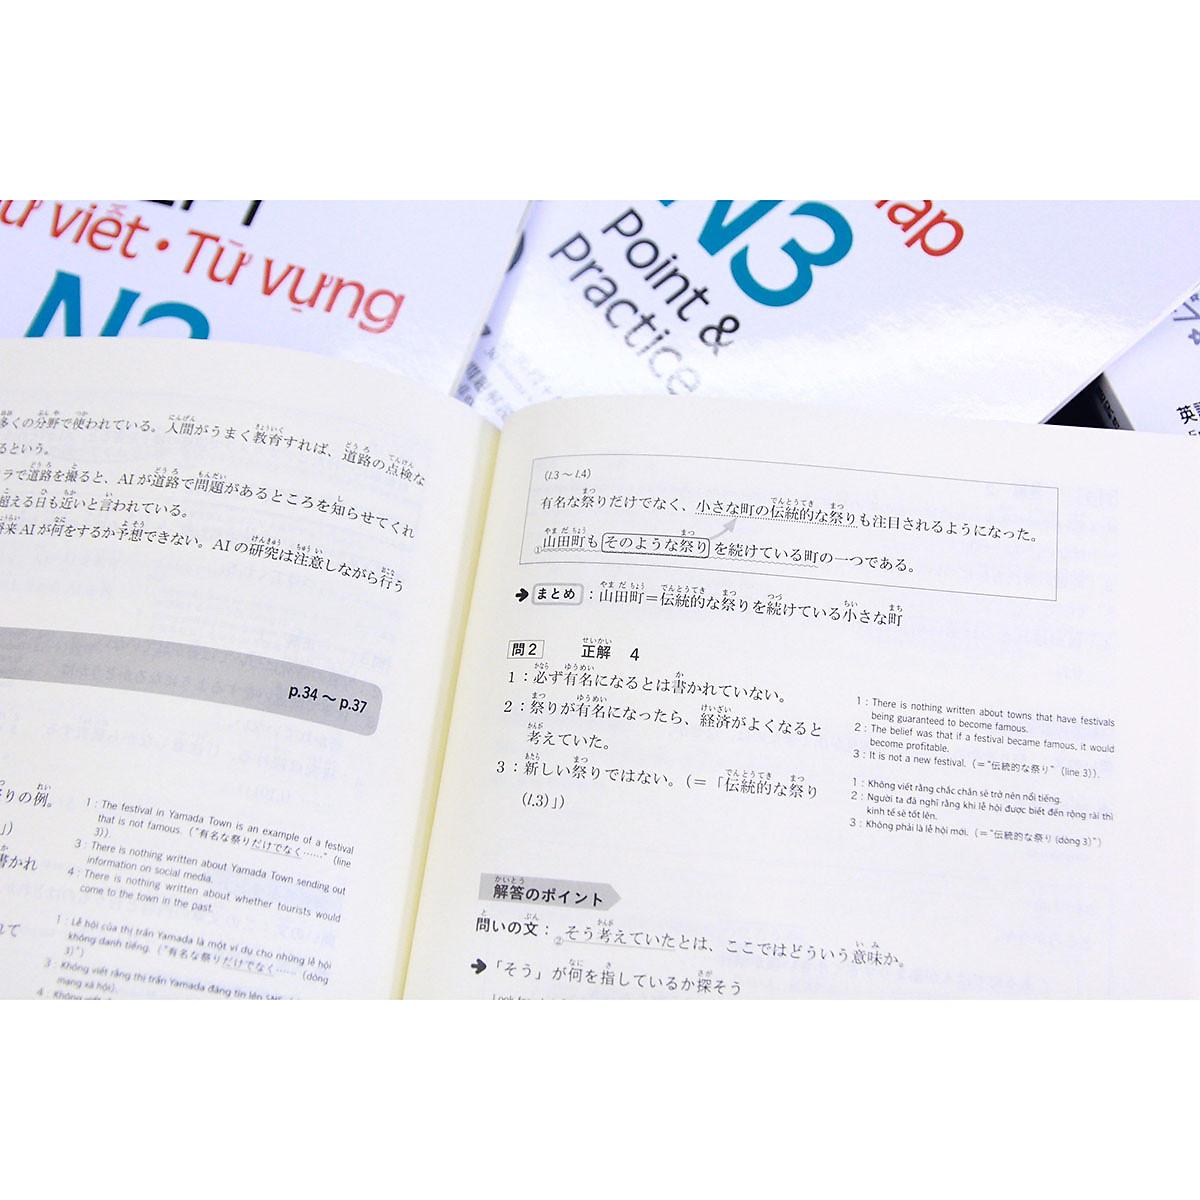 ư viết · Từ vựng
N3
Point &
Practice
多くの分野で使われている。人間がうまく教育すれば、道路の点検な
るという。
ラで道路を撮ると、AIが道路で問題があるところを知らせてくれ
超える日も近いと言われている。
将来AIが何をするか予想できない。AIの研究は注意しながら行う
p.34～p.37
祭りの例。
」)
書かれ
れて
1 : The festival in Yamada Town is an example of a festival
that is not famous. ("有名な祭りだけでなく……" (line
3)).
3 : There is nothing written about Yamada Town sending out
information on social media.
4 : There is nothing written about whether tourists would
come to the town in the past.
1 : Lễ hội của thị trấn Yamada là một ví dụ cho những lễ hội
không danh tiếng. ("有名な祭りだけでなく……" (dòng
3)")
3 : Không viết rằng thị trấn Yamada đăng tin lên SNS
mạng xã hội).
(l.3～l.4)
有名な祭りだけでなく、小さな町の伝統的な祭りも注目されるようになった。
①山田町も そのような祭り を続けている町の一つである。
➔ まとめ：山田町＝伝統的な祭りを続けている小さな町
問2 正解 4
1：必ず有名になるとは書かれていない。
2：祭りが有名になったら、経済がよくなると
考えていた。
3：新しい祭りではない。(＝「伝統的な祭り
(l.3)」)
1 : There is nothing written about towns that have festivals
being guaranteed to become famous.
2 : The belief was that if a festival became famous, it would
become profitable.
3 : It is not a new festival. (="伝統的な祭り" (line 3)).
1 : Không viết rằng chắc chắn sẽ trở nên nổi tiếng.
2 : Người ta đã nghĩ rằng khi lễ hội được biết đến rộng rãi thì
kinh tế sẽ tốt lên.
3 : Không phải là lễ hội mới. (="伝統的な祭り (dòng 3)")
解答のポイント
問いの文：②そう考えていたとは、ここではどういう意味か。
➔「そう」が何を指しているか探そう